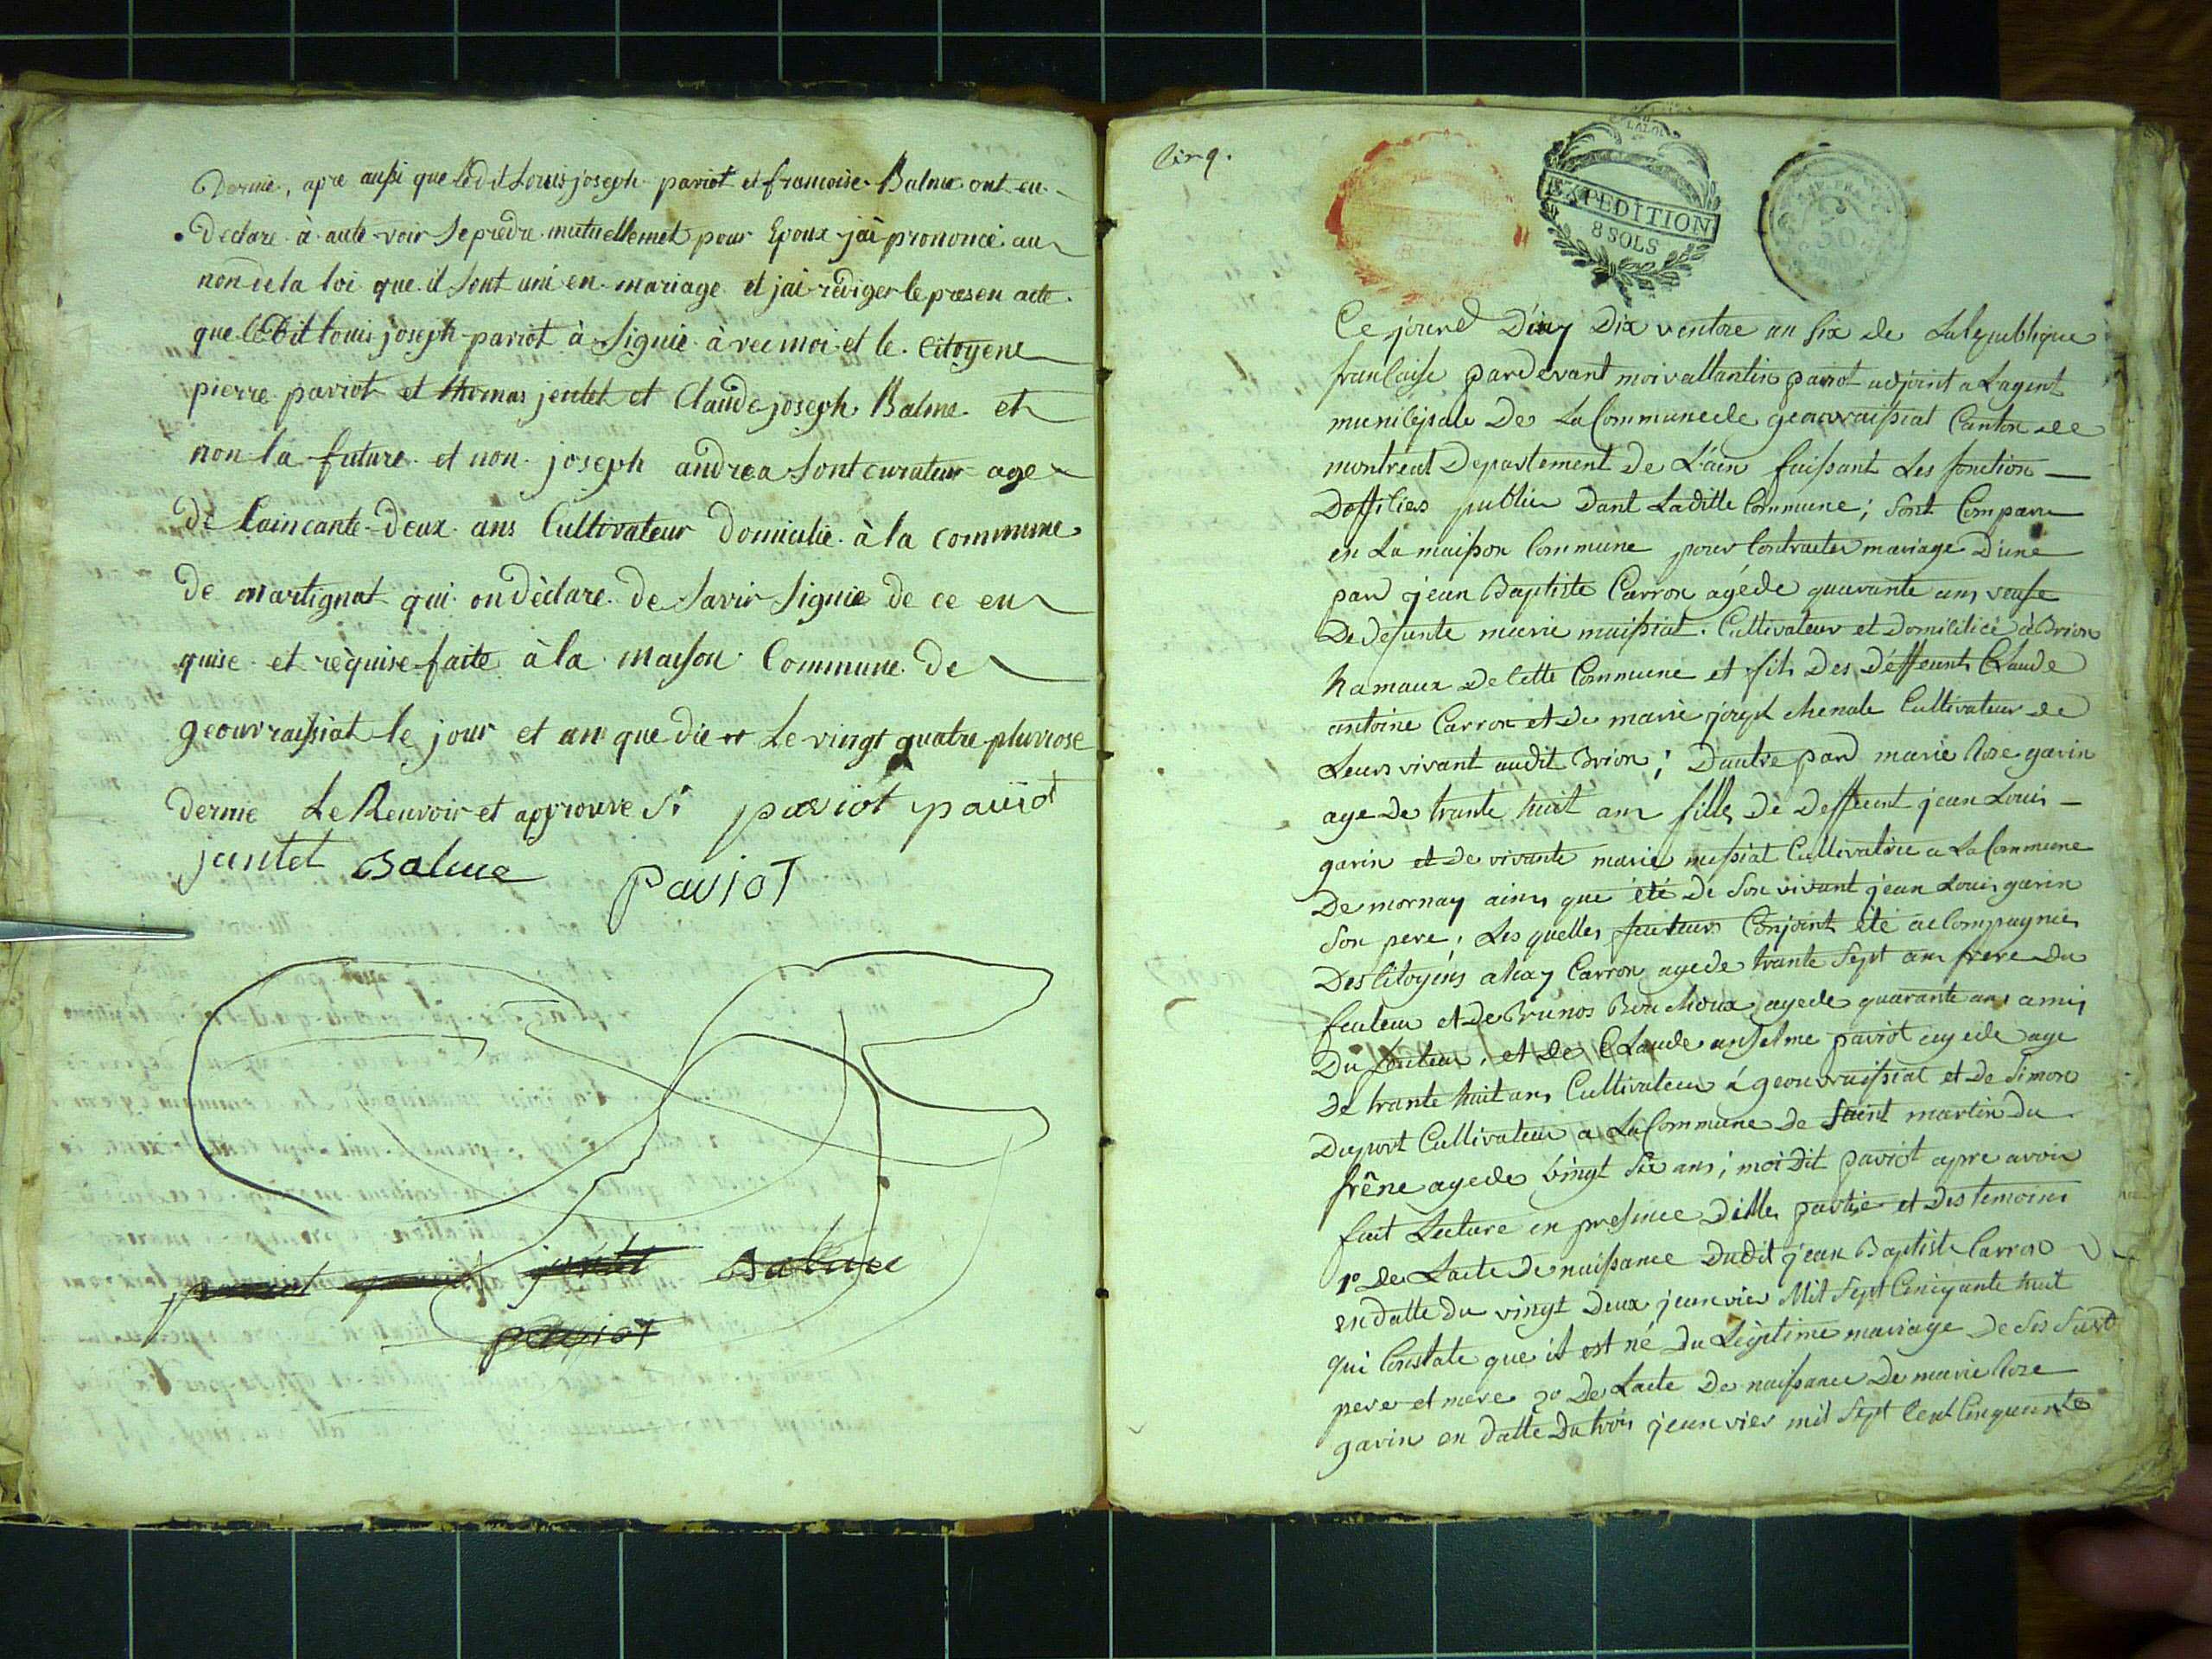 Dernie, apre aussi que ledit Louis joseph paviot et francoise Balme ont eu
Declare à aute voir se prèdre mutuellemet pour Epoux jài prononcé au
non de la loi que il sont uni en mariage et jai rédiger le presen acte
que le Dit louis joseph paviot à signié à vec moi et le Citoyene
pierre paviot et thomas jentet et Claude joseph Balme et
non la future et non joseph andrea sont curateur age
de Caincante deux ans Cultivateur Domicilie à la commune
de martignat qui on dèclare de savir signié de ce en
quise et rèquise faite à la maison Commune de
geouvraissiat le jour et an que die Le vingt quatre pluviose
dernie Le Renvoir et approuve Si paviot paviot
jentet Balme paviot
paviot jentet Balme
paviot
Cinq.
LA LOI
EXPEDITION
8 SOLS
50
Ce jourd D'uy Dix ventose an six de La Republique
francaise pardevant moi vallantin paviot adjoint a Lagent
municipale De La Commune de geouvraissiat Canton de
montreal Departement de L'ain faissant Les fonction
Dofficiers public Dant Laditte Commune; sont Comparu
en La maison Commune pour Contracter mariage D'une
pard jean Baptiste Carron agéde quarante ans veufe
De defunte marie maissiat. Cultivateur et Domicilié à Brion
hamaux de Cette Commune et fils Des Deffeunts Claude
antoine Carron et de marie joseph chenale Cultivateur de
Leurs vivant audit Brion; Dautre pard marie Rose gavin
age de trante huit ans fille de Deffeunt jean Louis
garin et de vivante marie missiat Cultivatrice a La Commune
De mornay ains que été de Son vivant jean Louis garin
Son pere, Les quelles feuteurs Conjoint été accompagnies
Des Citoyens alexy Carron agede trante Sept ans frere du
feuteur et de Brunos Bouchoux agede quarante ans amis
Du feuteur, et de Claude anselme paviot agede age
De trante huit ans Cultivateur à geouvraissiat et de Simon
Duport Cultivateur a La Commune de Saint martin du
frêne agede vingt Six ans; moi Dit paviot apre avoir
fait Lecture en presence Dittes partie et des temoins
1º de Lacte de naissance Dudit jean Baptiste Carron
en datte du vingt Deux jeanvier Mil Sept Cinquante huit
qui Constate que il est né du Légitime mariage De ses Susd
pere et mere 2º De Lacte De naissance De marie Rose
gavin en datte Du trois jeanvier mil Sept Cent Cinquante